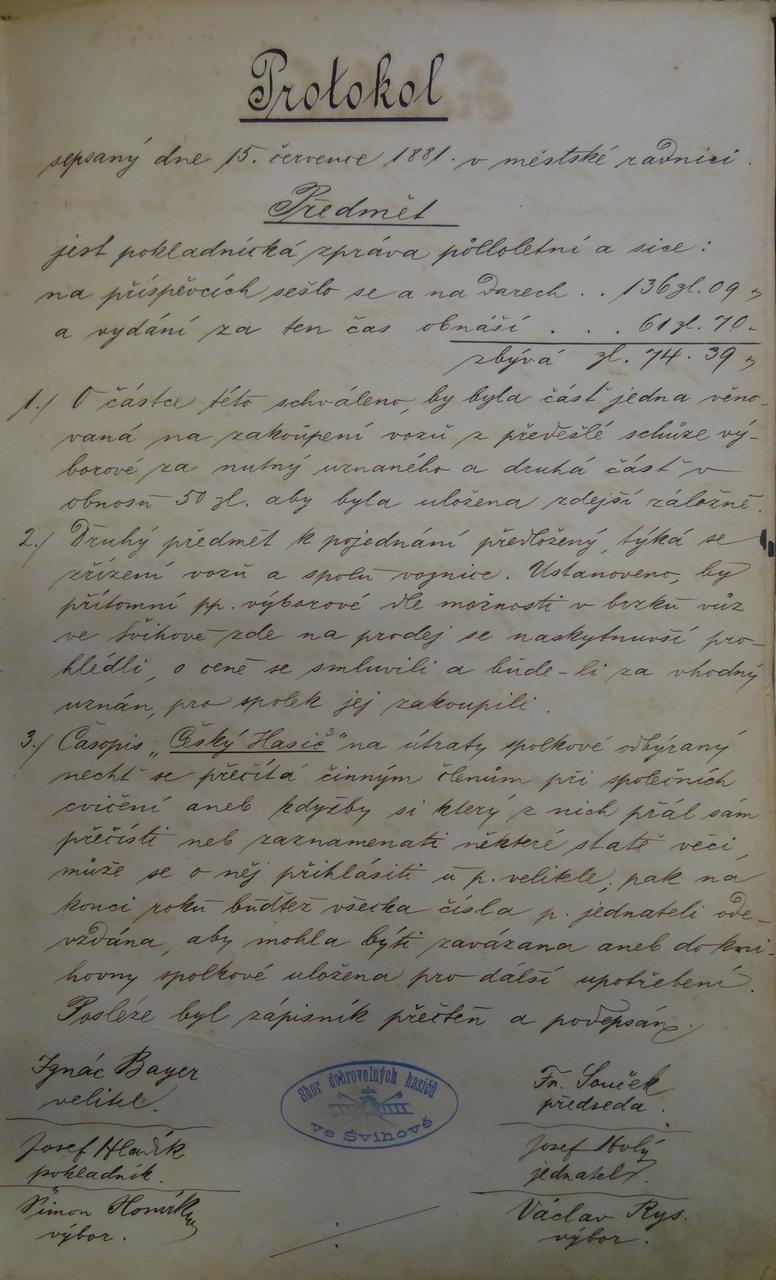 Protokol
sepsaný dne 15. července 1881. v městské radnici.
Předmět
jest pokladnická zpráva půlloletní a sice:
na příspěvcích sešlo se a na darech . . 136 zl. 09 "
a vydání za ten čas obnáší . . . 61 zl. 70.
zbývá zl. 74. 39 "
1./ O částce této schváleno, by byla část jedna věno-
vaná na zakoupení vozů z předešlé schůze vý-
borové za nutný uznaného a druhá část v
obnosu 50 zl. aby byla uložena zdejší záložně.
2./ Druhý předmět k pojednání předložený, týká se
zřízení vozů a spolu vojnice. Ustanoveno, by
přítomní pp. výborové dle možnosti v brzku vůz
ve Švihově zde na prodej se naskytnuvší pro-
hlédli, o ceně se smluvili a bude-li za vhodný
uznán, pro spolek jej zakoupili.
3./ Časopis "Český Hasič" na útraty spolkové odbýraný
nechť se přečítá činným členům při společních
cvičení aneb kdyžby si který z nich přál sám
přečísti neb zaznamenati některé statě věci,
může se o něj přihlásiti u p. velitele; pak na
konci roku buďtež všecka čísla p. jednateli ode-
vzdána, aby mohla býti zavázana aneb do kni-
hovny spolkové uložena pro další upotřebení.
Posléze byl zápisník přečten a podepsán.
Ignác Bayer
velitel.
Fr. Souček
předseda.
Sbor dobrovolných hasičů
ve Švihově
Josef Hladík
pokladník.
Josef Holý
jednatel.
Šimon
výbor.
Václav Rys.
výbor.